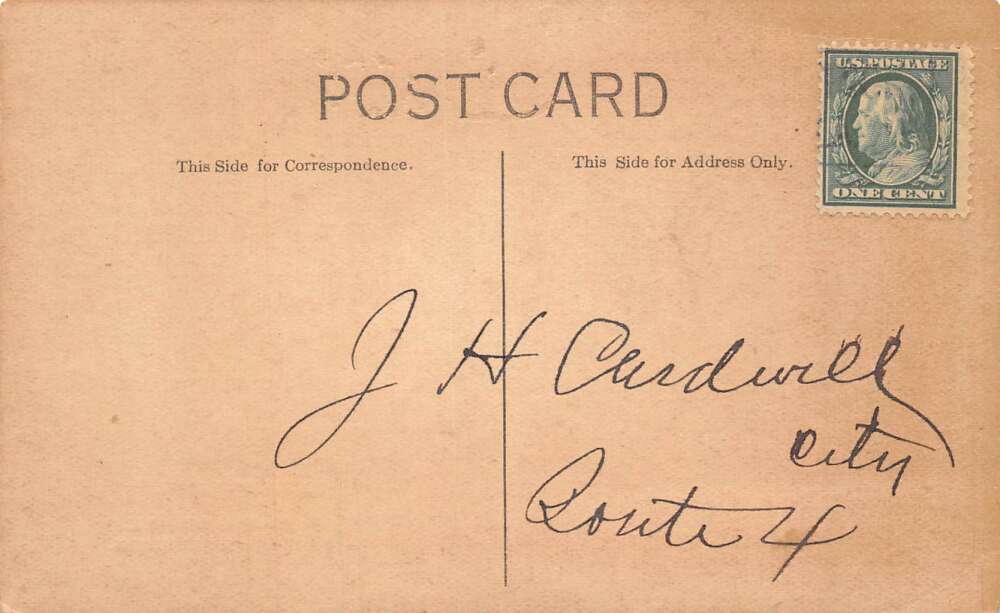 POST CARD
This Side for Correspondence.
This Side for Address Only.
U.S. POSTAGE
ONE CENT
J H Cardwell
City
Route 4